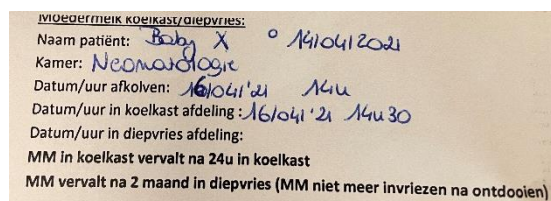 Moedermelk koelkast/diepvries:
Naam patiënt: Baby X ° 14/04/2021
Kamer: Neonatologie
Datum/uur afkolven: 16/04/'21 14u
Datum/uur in koelkast afdeling: 16/04/'21 14u30
Datum/uur in diepvries afdeling:
MM in koelkast vervalt na 24u in koelkast
MM vervalt na 2 maand in diepvries (MM niet meer invriezen na ontdooien)